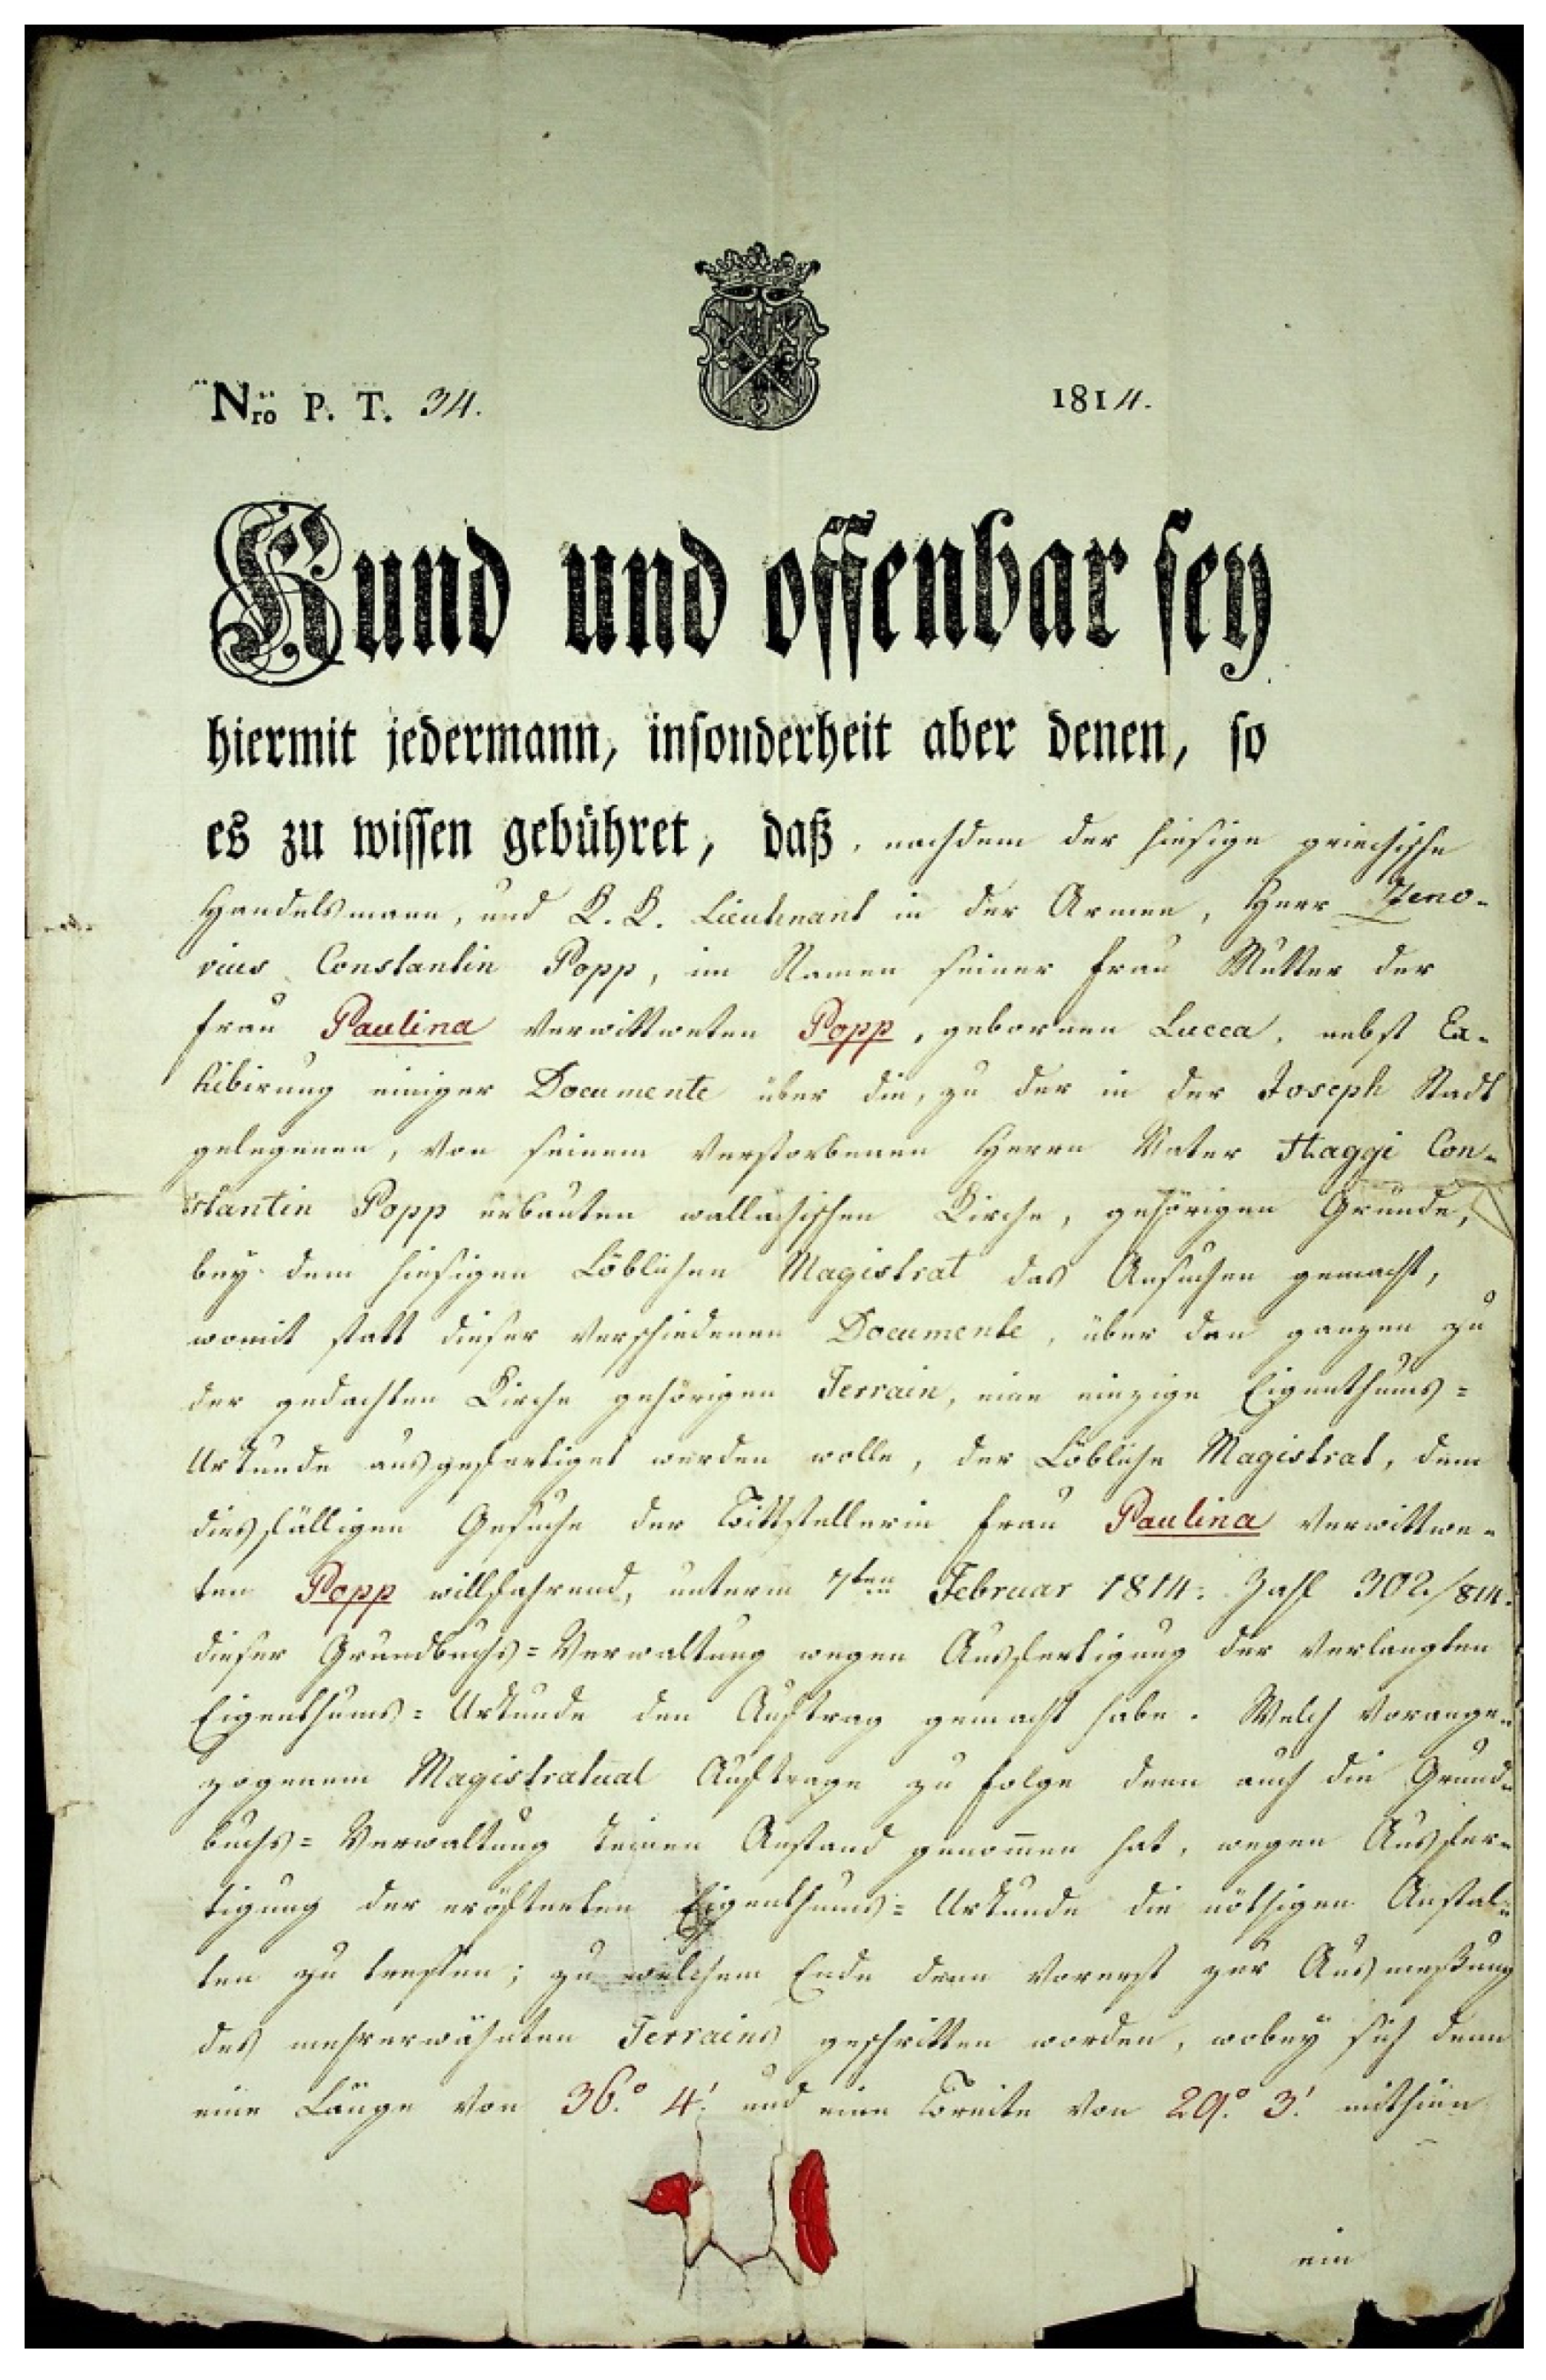 Nrö P. T. 34.
1814.
Kund und offenbar sey
hiermit jedermann, insonderheit aber denen, so
es zu wissen gebühret, daß, nachdem der hiesige griechische
Handelsmann, und K. K. Lieutenant in der Armee, Herr Zeno-
vius Constantin Popp, im Namen seiner Frau Mutter der
Frau Paulina verwittweten Popp, gebornen Lucca, nebst Ex-
hibirung einiger Documente über die, zu der in der Joseph Stadt
gelegenen, von seinem verstorbenen Herrn Vater Haggi Con-
stantin Popp erbauten wallachischen Kirche, gehörigen Gründe,
bey dem hiesigen Löblichen Magistrat das Ansuchen gemacht,
womit statt dieser verschiedenen Documente, über den ganzen zu
der gedachten Kirche gehörigen Terrain, eine einzige Eigenthums=
Urkunde ausgefertiget werden wolle, der Löbliche Magistrat, dem
diesfälligen Gesuche der Bittstellerin Frau Paulina verwittwe-
ten Popp willfahrend, unterm 7ten Februar 1814. Zahl 302./814.
dieser Grundbuchs=Verwaltung wegen Ausfertigung der verlangten
Eigenthums=Urkunde den Auftrag gemacht habe. Welch vorange-
zogenem Magistratual Auftrage zu Folge denn auch die Grund-
buchs=Verwaltung keinen Anstand genom̄en hat, wegen Ausfer-
tigung der eröfterten Eigenthums=Urkunde die nöthigen Anstal-
ten zu treffen; zu welchem Ende denn vorerst zur Ausmeßung
des mehrerwähnten Terrains geschritten worden, wobey sich denn
eine Länge von 36.° 4.' und eine Breite von 29.° 3.' mithin
ein